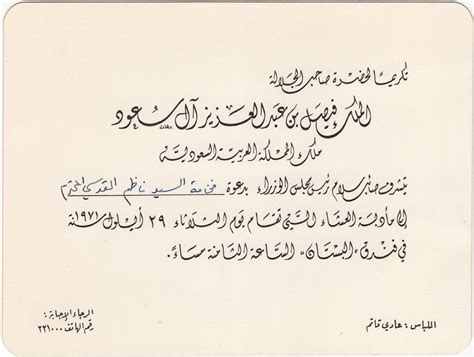 تكريمًا لحضرة صاحب الجلالة
الملك فيصل بن عبد العزيز آل سعود
ملك المملكة العربية السعودية
يتشرف صائب سلام رئيس مجلس الوزراء بدعوة فخامة السيد ناظم القدسي المحترم
إلى مأدبة العشاء التي تقام يوم الثلاثاء ٢٩ أيلول سنة ١٩٧١
في فندق «البستان» الساعة الثامنة مساءً.
اللباس: عادي قاتم
الرجاء الإجابة:
رقم الهاتف: ٢٢١٠٠٠